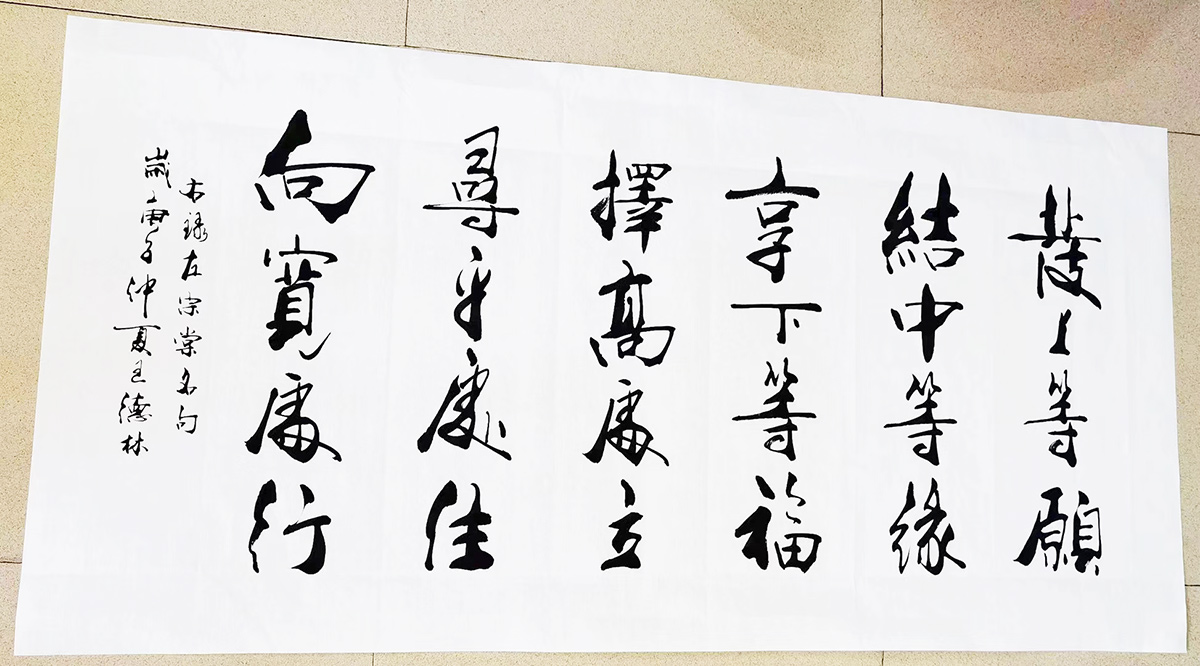 發上等願
結中等緣
享下等福
擇高處立
尋平處住
向寬處行
右録左宗棠名句
歲庚子仲夏王德林